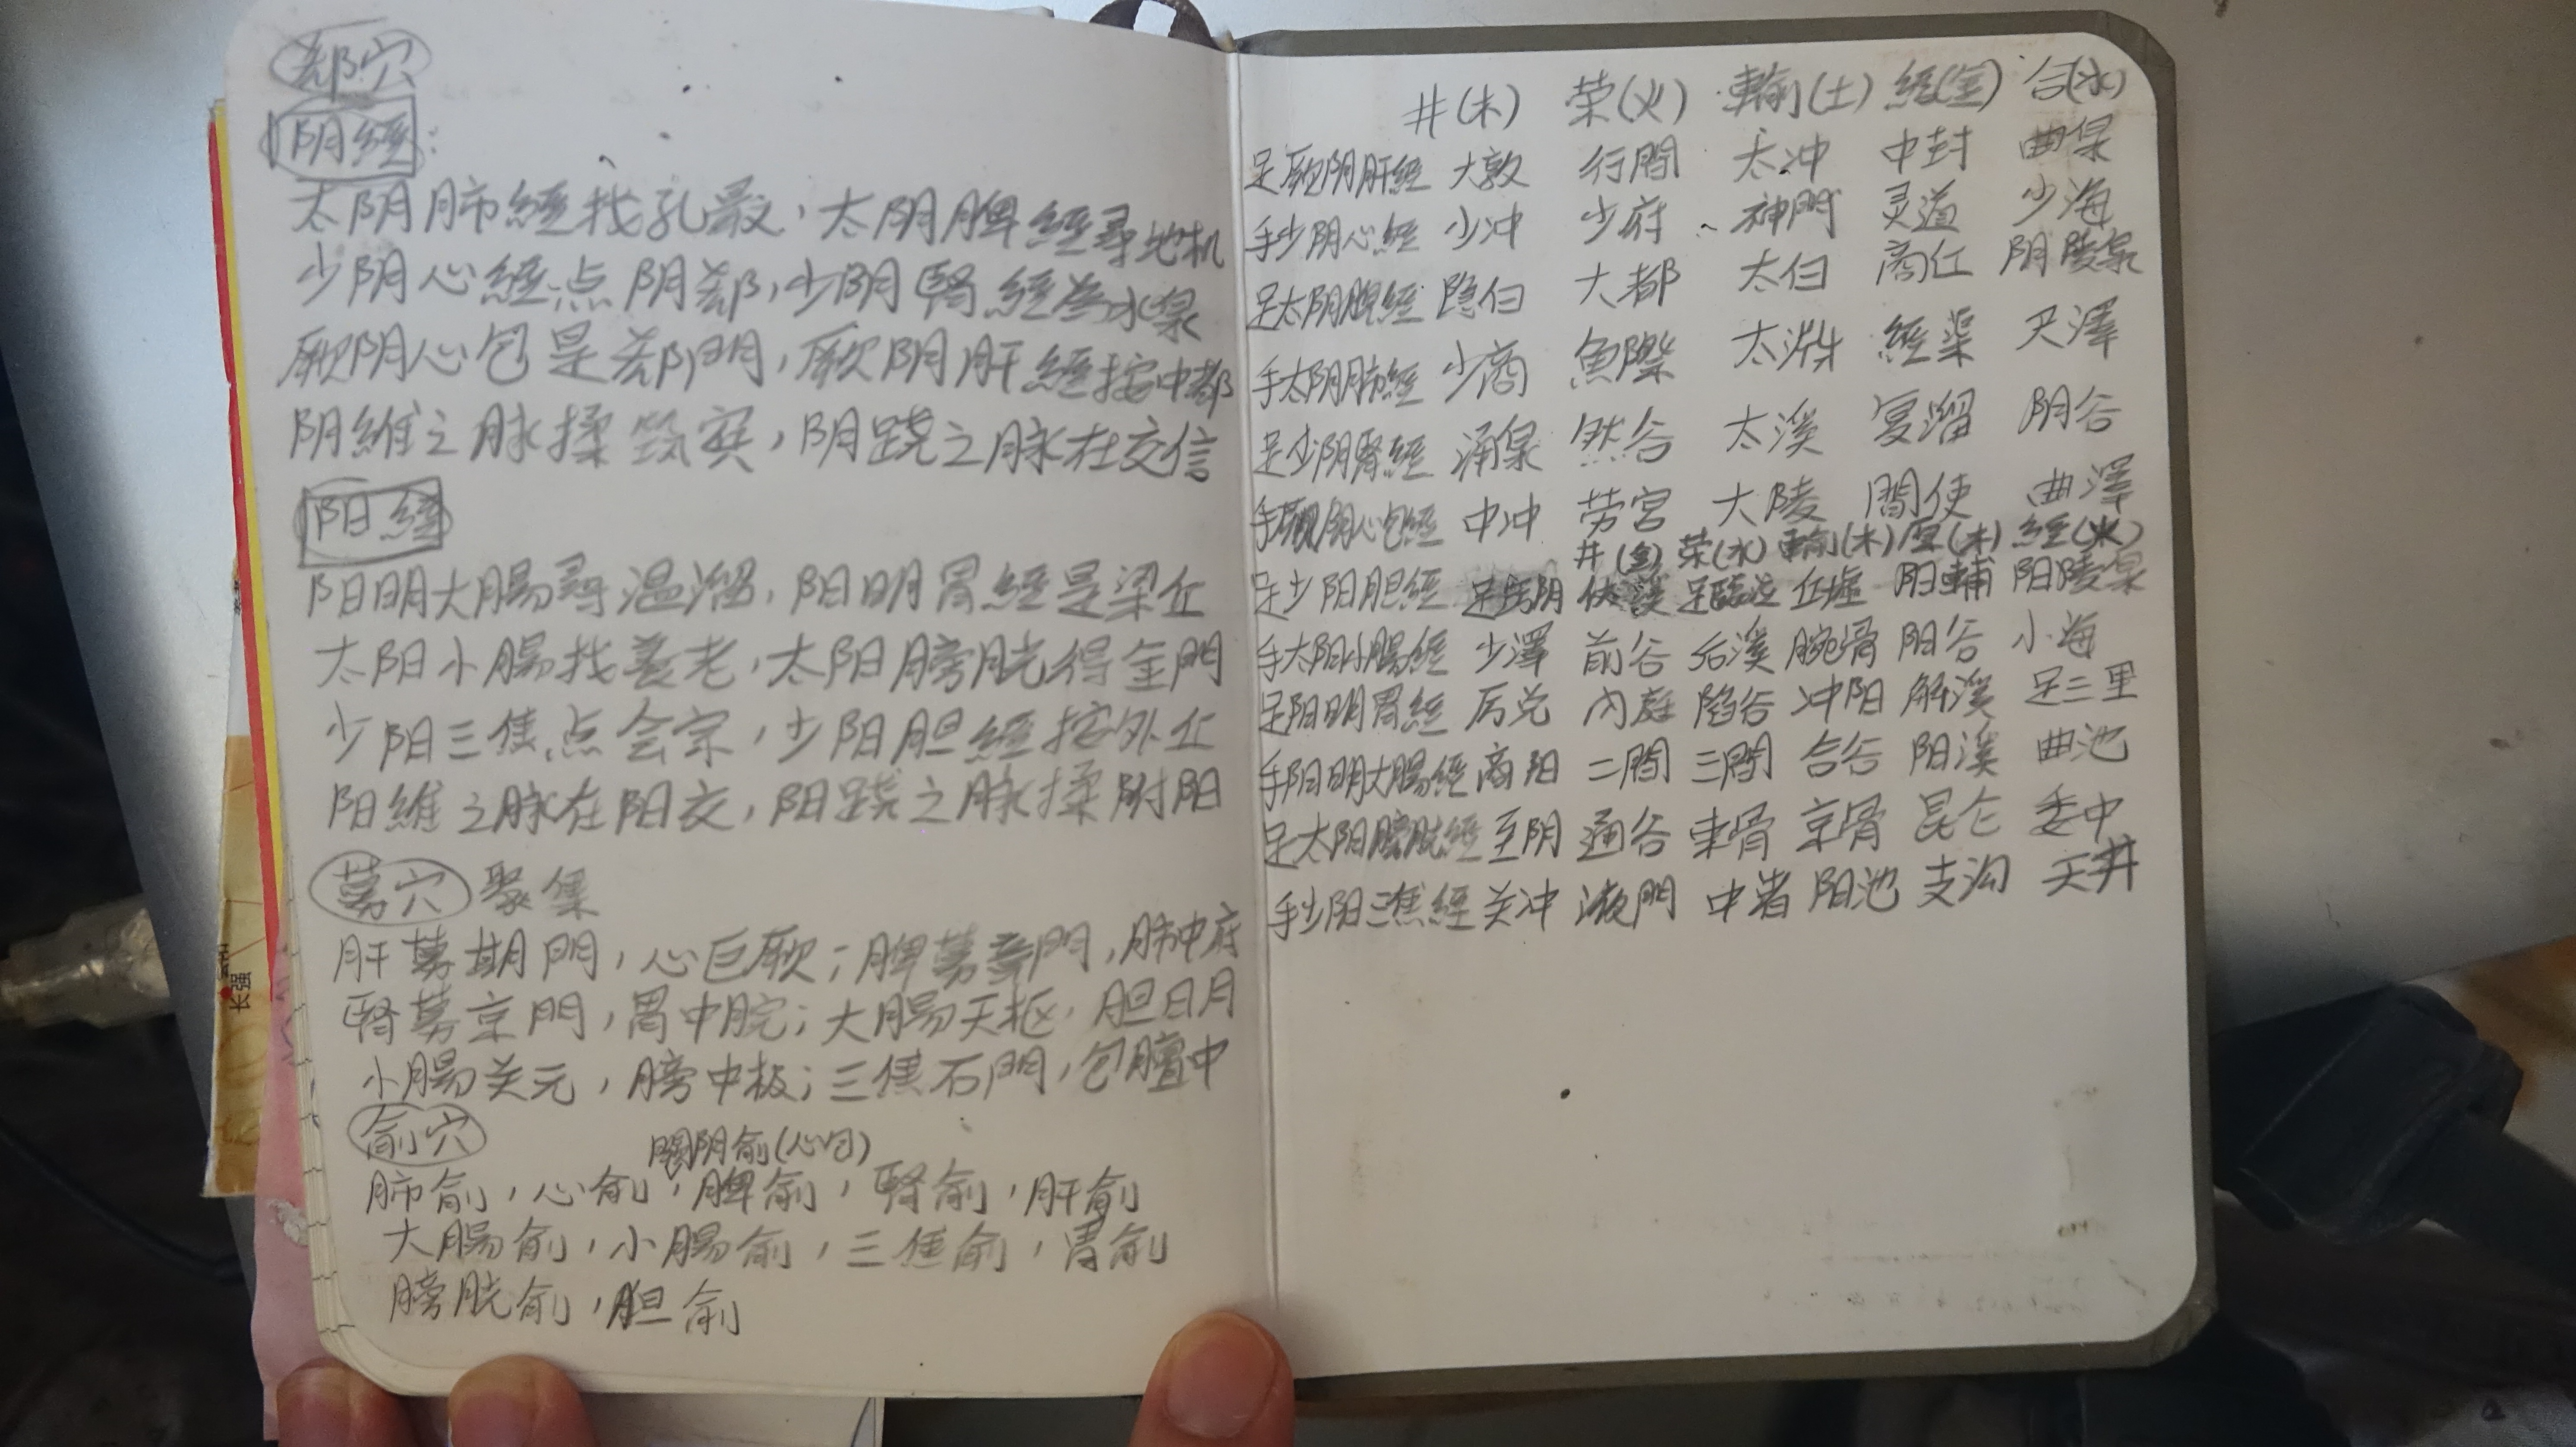 郄穴
阴經:
太阴肺經找孔最，太阴脾經尋地机
少阴心經点阴郄，少阴腎經為水泉
厥阴心包是郄门，厥阴肝經按中都
阴維之脉揉筑宾，阴跷之脉在交信
阳經
阳明大腸尋温溜，阳明胃經是梁丘
太阳小腸找養老，太阳膀胱得金門
少阳三焦点会宗，少阳胆經按外丘
阳維之脉在阳交，阳跷之脉揉跗阳
募穴 聚集
肝募期門，心巨厥；脾募章門，肺中府
腎募京門，胃中脘；大腸天枢，胆日月
小腸关元，膀中极；三焦石門，包膻中
俞穴
阴俞(心包)
肺俞，心俞，脾俞，腎俞，肝俞
大腸俞，小腸俞，三焦俞，胃俞
膀胱俞，胆俞
井(木) 荣(火) 輸(土) 經(金) 合(水)
足厥阴肝經 大敦 行間 太冲 中封 曲泉
手少阴心經 少冲 少府 神門 灵道 少海
足太阴脾經 隐白 大都 太白 商丘 阴陵泉
手太阴肺經 少商 魚際 太渊 經渠 尺澤
足少阴腎經 涌泉 然谷 太溪 复溜 阴谷
手厥阴心包經 中冲 劳宫 大陵 間使 曲澤
井(金) 荣(水) 輸(木) 原(木) 經(火)
足少阳胆經 足窍阴 侠溪 足臨泣 丘墟 阳輔 阳陵泉
手太阳小腸經 少澤 前谷 后溪 腕骨 阳谷 小海
足阳明胃經 厉兑 内庭 陷谷 冲阳 解溪 足三里
手阳明大腸經 商阳 二間 三間 合谷 阳溪 曲池
足太阳膀胱經 至阴 通谷 束骨 京骨 昆仑 委中
手少阳三焦經 关冲 液門 中渚 阳池 支沟 天井
长强